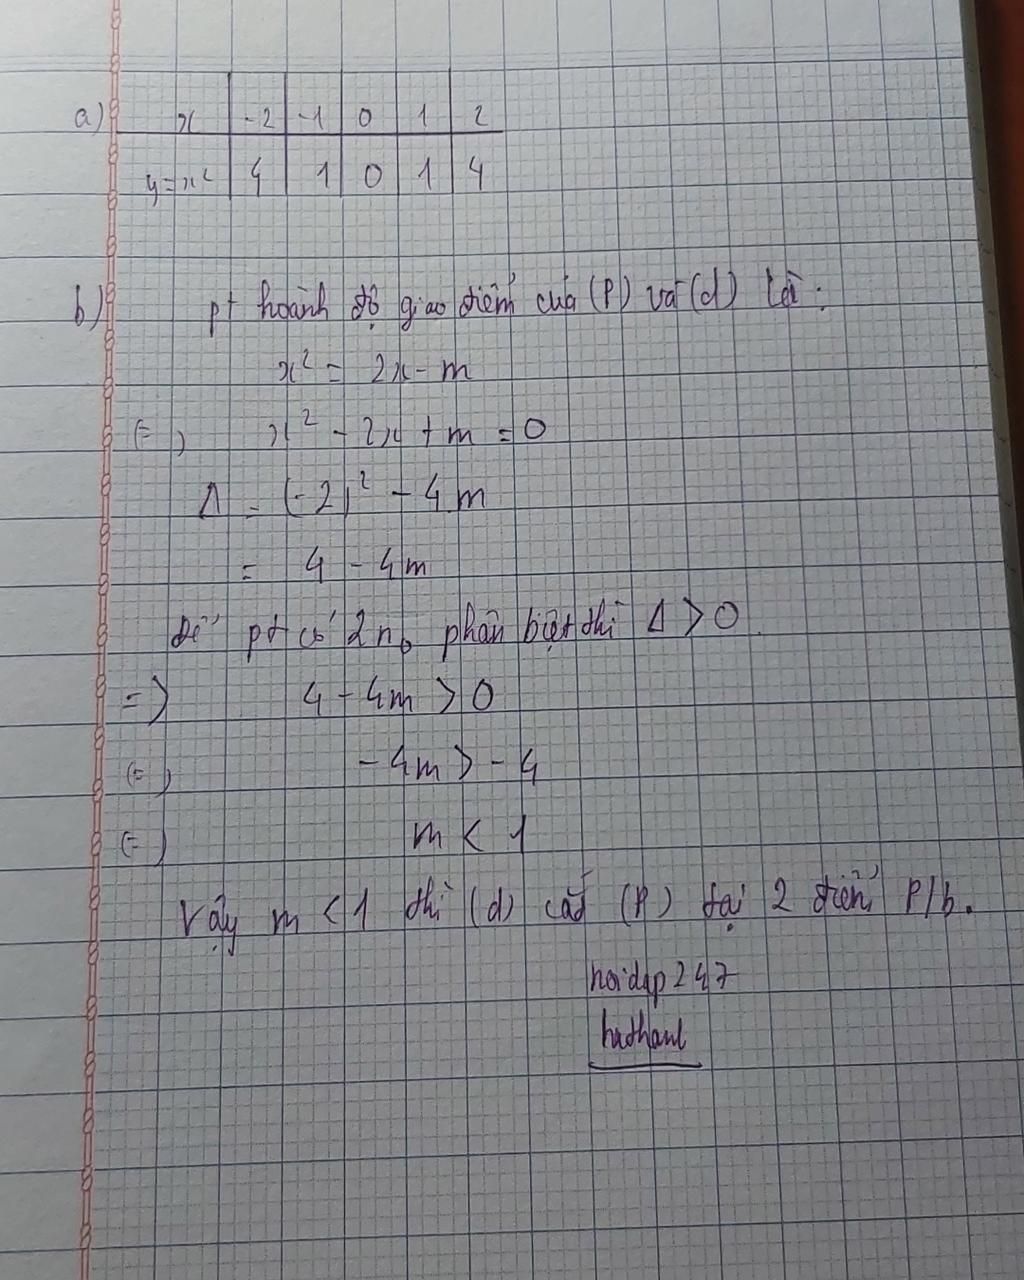 a) x -2 -1 0 1 2
y=x² 4 1 0 1 4
b) pt hoành độ giao điểm của (P) và (d) là:
x² = 2x - m
(=) x² - 2x + m = 0
Δ = (-2)² - 4m
= 4 - 4m
Để pt có 2 no phân biệt thì Δ > 0.
=> 4 - 4m > 0
(=) -4m > -4
(=) m < 1
Vậy m < 1 thì (d) cắt (P) tại 2 điểm P/b.
hoidap247